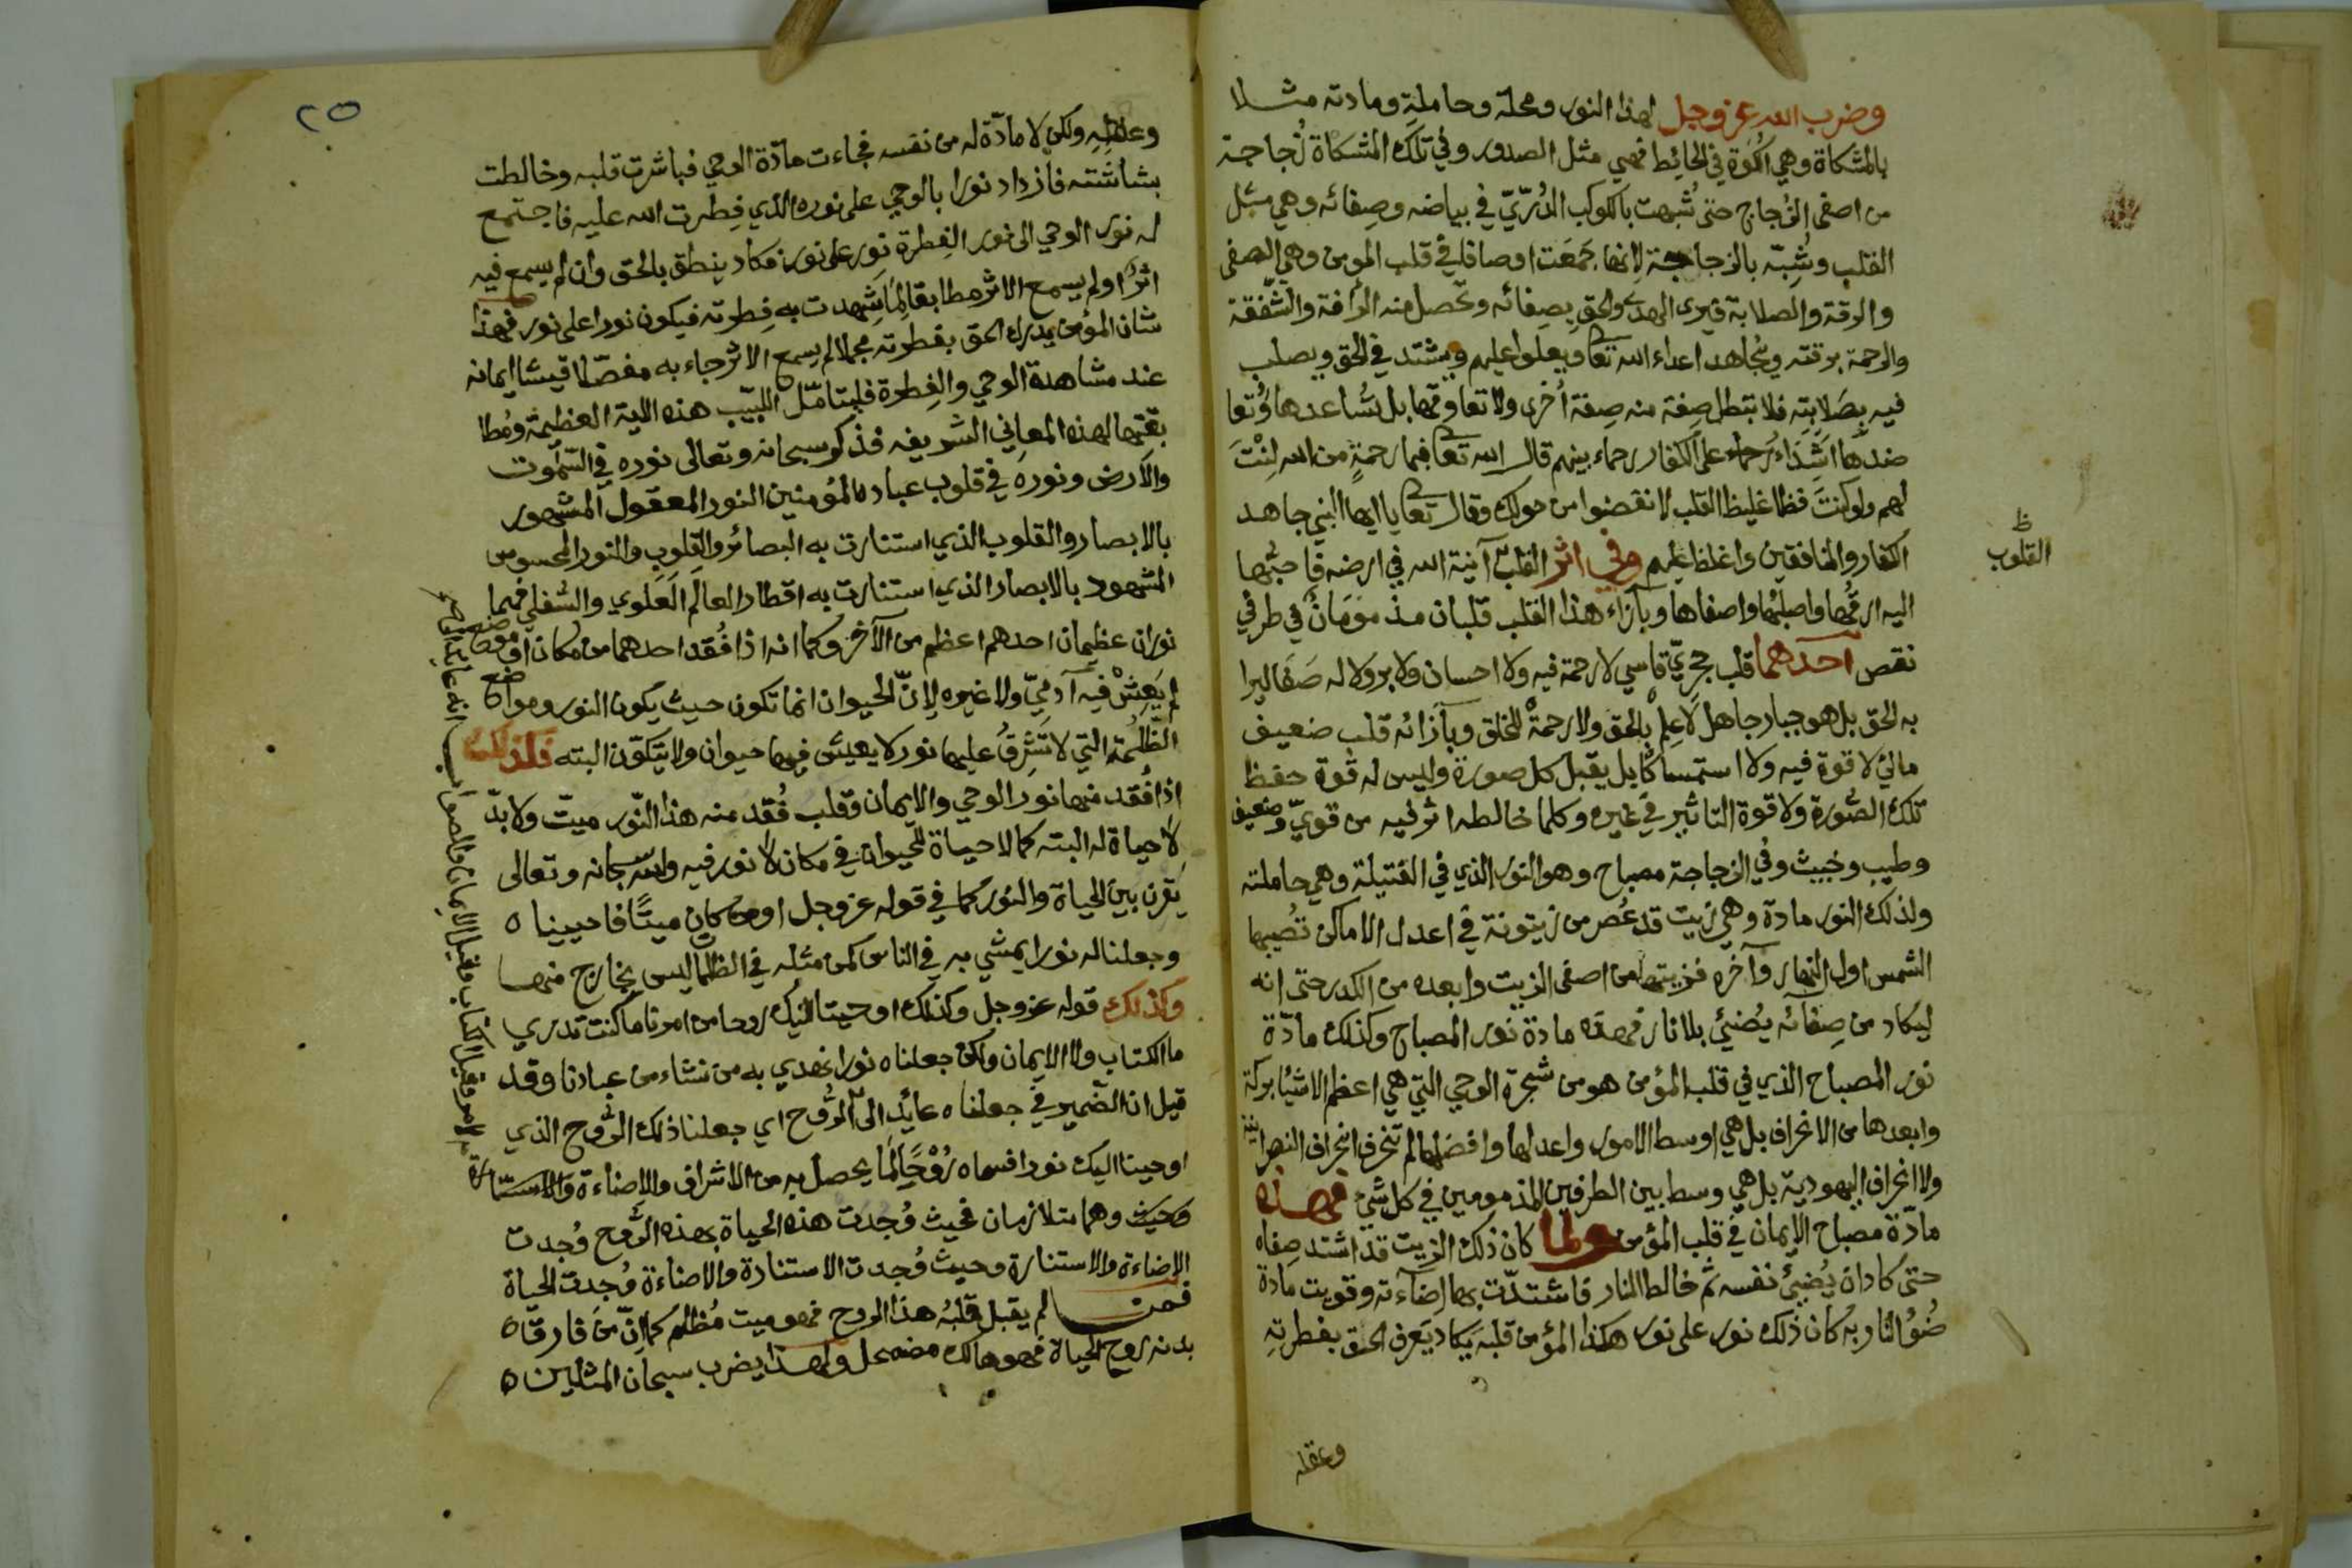 وضرب الله عز وجل لهذا النور ومحله وحامله ومادته مثلا
بالمشكاة وهي الكوة في الحائط فهي مثل الصدور وفي تلك المشكاة زُجاجة
من اصفى الزُجاج حتى شُبهت بالكوكب الدُرّيّ في بياضه وصِفائه وهي مثل
القلب وشُبّه بالزجاجة لانها جمعَت اوصافا في قلب المومن وهي الصفى
والرقة والصلابة فيرى الهدى والحق بصِفائه وتحصل منه الرافة والشفقة
والرحمة برقته ويُجاهد اعداء الله تعا ويعلوا عليهم ويشتد في الحق ويصلب
فيه بصَلابتِه فلا تبطل صِفة منه صِفة اُخرى ولا تعاوقها بل تُساعدها وتُعا
ضدها اشِدّاء رُحماء على الكفار رحماء بينهم قال الله تعا فبما رحمةٍ من الله لِنْتَ
لهم ولو كنتَ فظا غليظ القلب لانفضوا من حولك وقال تعا يا ايها النبي جاهد
الكفار والمنافقين واغلظ عليهم وفي اثر القلب آنية الله في ارضه فاحبُّها
ظ
القلوب
اليه ارقُّها واصلبُها واصفاها وبآزاء هذا القلب قلبان مذمومَانِ في طرفي
نقص احدهما قلب حجريّ قاسي لا رحمة فيه ولا احسان ولا بر ولا له صَفَا ليرا
به الحق بل هو جبار جاهل لا عِلْم بالحق ولا رحمةْ للخلق وبآزائه قلب ضعيف
مائي لا قوة فيه ولا استمساكا بل يقبل كل صورة وليس له قُوة حفظ
تلك الصُّورة ولا قوة التاثير في غيره وكلما خالطه اثر فيه من قويّ وضعيف
وطيب وخبيث وفي الزجاجة مصباح وهو النور الذي في الفتيلة وهي حاملته
ولذلك النور مادة وهي زيت قد عُصر من زيتونة في اعدل الاماكن تُصيبها
الشمس اول النهار وآخره فزيتها من اصفى الزيت وابعده من الكدر حتى انه
ليكاد من صِفائه يُضئُ بلا نار فهذه مادة نور المصباح وكذلك مادّة
نور المصباح الذي في قلب المؤمن هو من شجرة الوحي التي هي اعظم الاشيا بركة
وابعدها من الانحراف بل هي اوسط الامور واعدلها وافضلها لم تنحرف انحراف النصرانية
ولا انحراف اليهودية بل هي وسط بين الطرفين المذمومين في كل شئ فهذه
مادّة مصباح الايمان في قلب المؤمن ولما كان ذلك الزيت قد اشتد صِفاه
حتى كاد ان يُضئُ نفسه ثم خالط النار فاشتدّت بها إضآءته وقويت مادة
ضُؤ النار به كان ذلك نور على نور هكذا المؤمن قلبه يكاد يَعرف الحق بفطرتهِ
وعقله
٢٥
وعقلهِ ولكن لا مادّة له من نفسه فجاءت مادّة الوحي فباشرت قلبه وخالطت
بشاشته فازداد نورا بالوحي على نوره الذي فِطرت الله عليه فاجتمع
له نور الوحي الى نور الفِطرة نور على نور فكاد ينطق بالحق وان لم يسمع فيه
اثرًا ولم يسمع الاثر مطابقا لِمَا شهدت به فِطرته فيكون نورا على نور فهذا
شان المؤمن يدرك الحق بفطرته مجملا ثم يسمع الاثر جاء به مفصّلا فيشا ايمانه
عند مشاهدة الوحي والفِطرة فليتامّل اللبيّب هذه الاية العظيمة ومُطا
بقتها لهذه المعاني الشريفه فذكر سبحانه وتعالى نوره في السّموت
والارض ونورَه في قلوب عباده المؤمنين النور المعقول المشهور
بالابصار والقلوب الذي استنارت به البصائر والقلوب والنور المحسوس
المشهود بالابصار الذي استنارت به اقطار العالَم العَلوي والسُفلي فهما
نوران عظيمان احدهم اعظم من الآخر وكما انه اذا فُقد احدهما من مكان او موضع
لم يَعِشْ فيه آدميّ ولا غيره لانّ الحيوان انما تكون حيث يكون النور ومواضع
الظّلمة التي لا تُشرقُ عليها نور لا يعيش فيها حيوان ولا يتكوّن البته فكذلك
اذا فُقد منها نور الوحي والايمان وقلب فُقِد منه هذا النّور ميتّ ولا بدّ
لا حياة له البته كما لا حياة للحيوان في مكان لا نور فيه والله سبحانه وتعالى
يَقرن بين الحياة والنور كما في قوله عز وجل اومن كان ميتًا فاحييناه
وجعلنا له نورا يمشي به في الناس كمن مثله في الظلمات ليس بخارج منها
وكذلك قوله عز وجل وكذلك اوحينا اليك روحا من امرنا ما كنت تدري
ما الكتاب ولا الايمان ولكن جعلناه نورا نهدي به من نشاء من عبادنا وقد
قيل ان الضمير في جعلناه عائد الى الرُّوح اي جعلنا ذلك الرُّوح الذي
اوحينا اليك نورا فسماه رُوْحًا لِمَا يحصل به من الاشراق والاضاءة والاستنارة
وحيث وهما متلازمان فحيث وُجدت هذه الحياة بهذه الرُّوح وُجدت
الاضاءة والاستنارة وحيث وُجدت الاستنارة والاضاءة وُجدت الحياة
فمن لم يقبل قلبُه هذا الروح فهو ميت مُظلم كما انّ مَن فارق
بدنه روح الحياة فهو هالك مضمحل ولهذا يضرب سبحان المثلين
الامر وقيل الكتاب وقيل الايمان والصواب انه عائد الى الروح